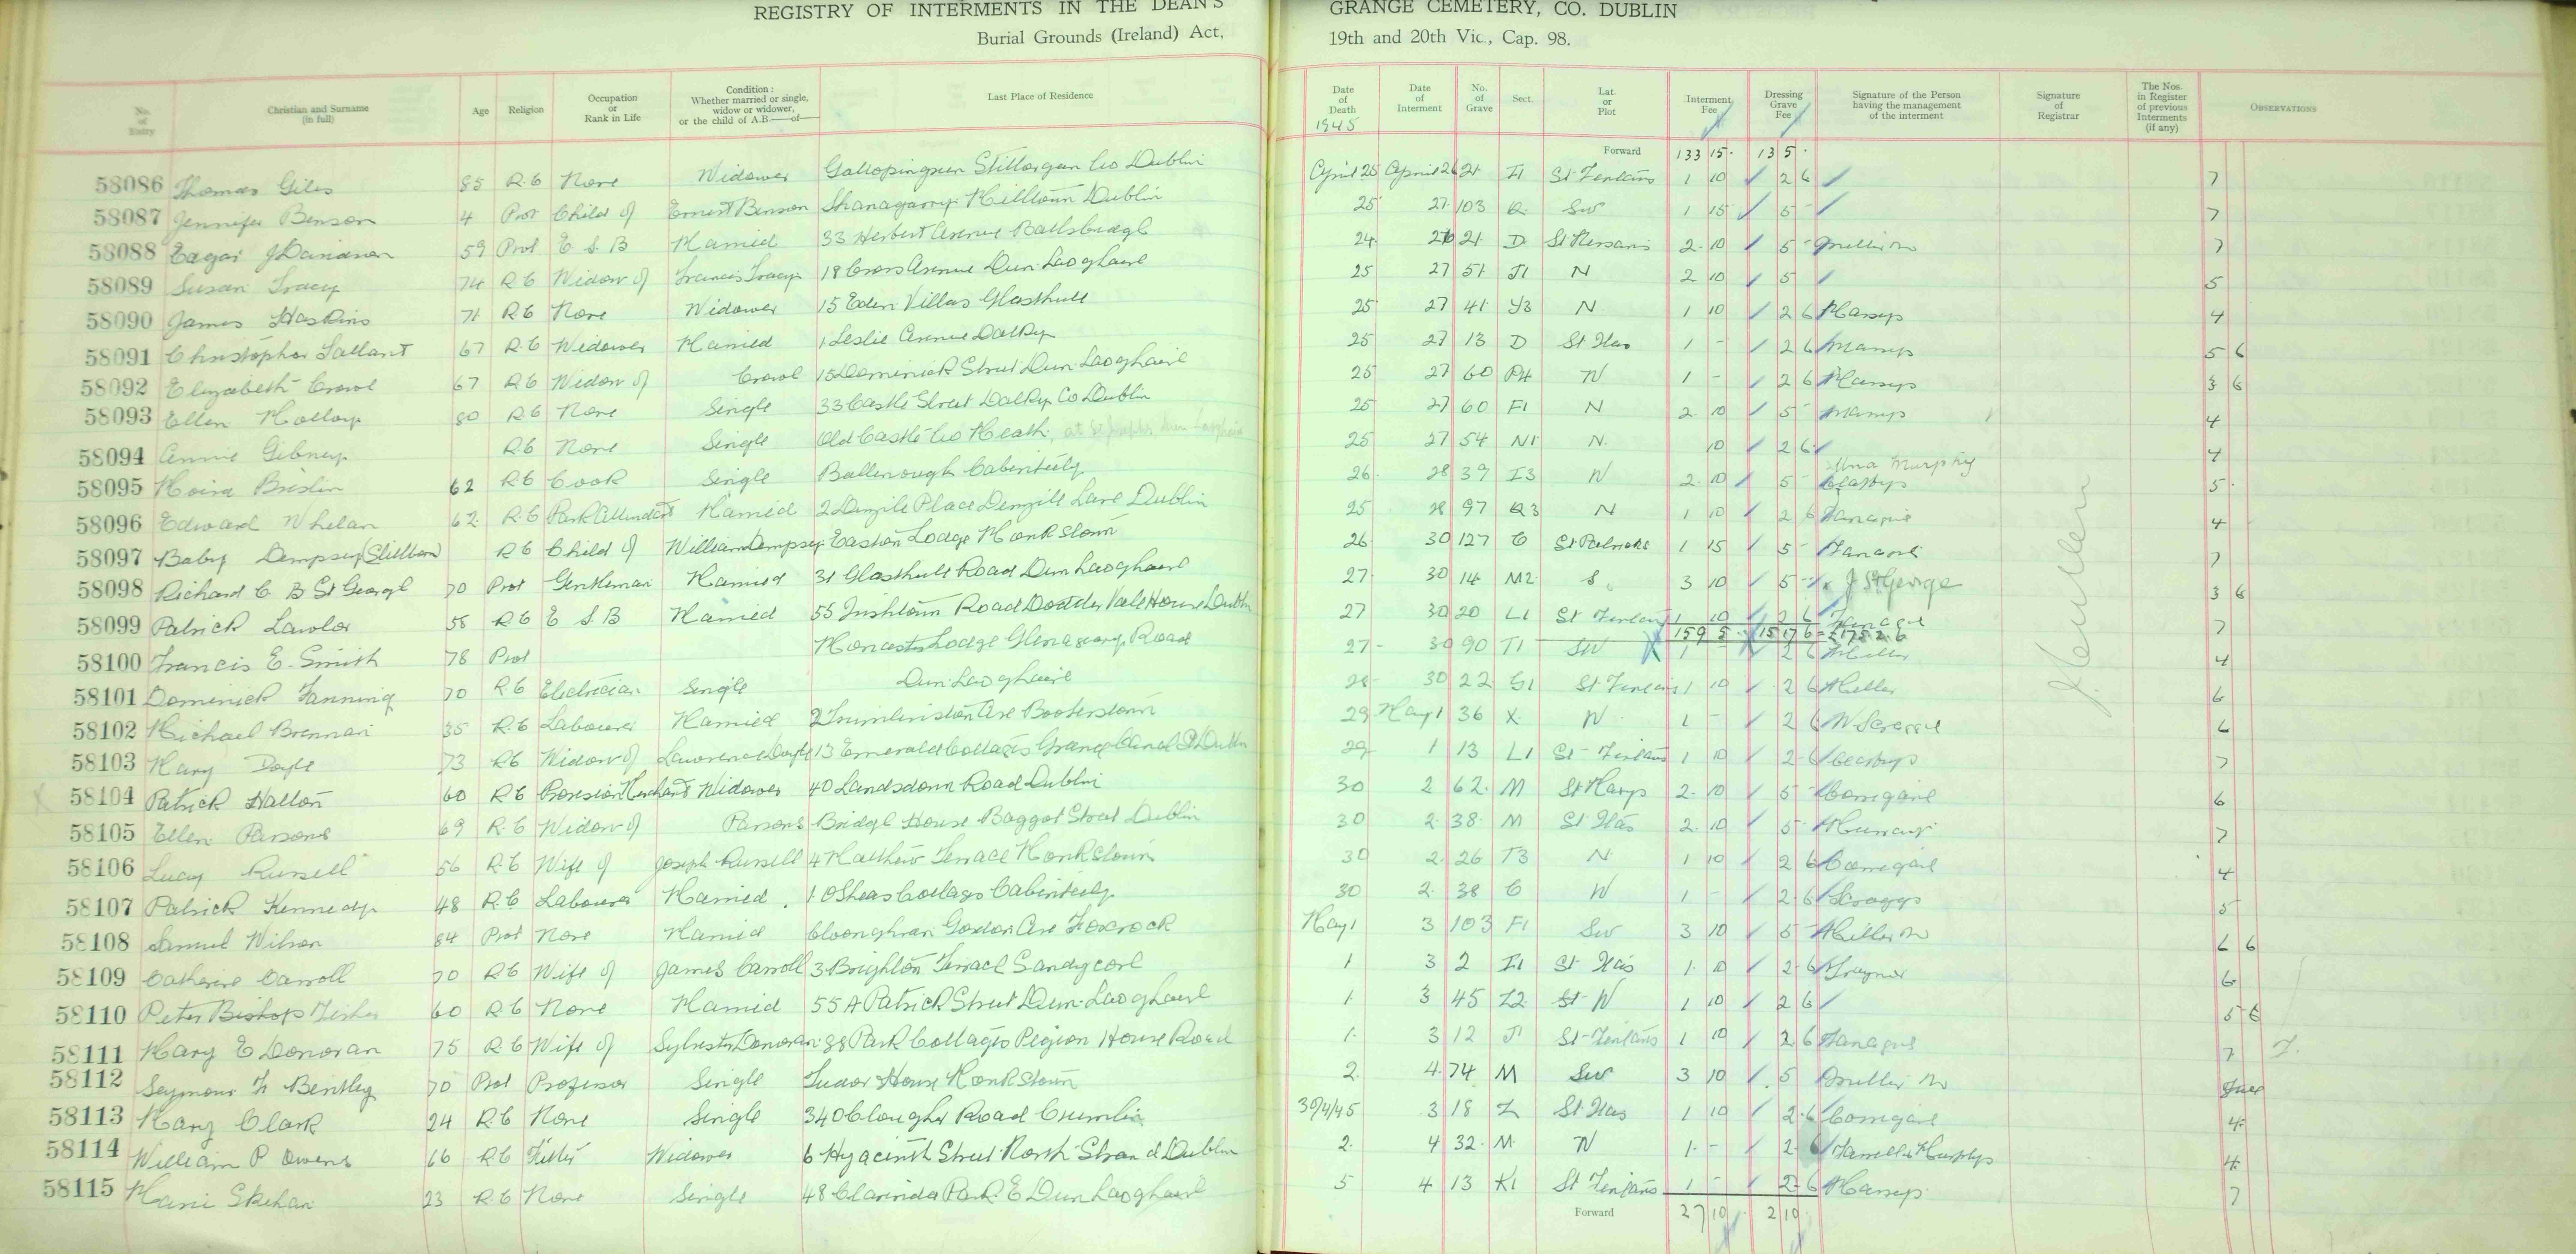 REGISTRY OF INTERMENTS IN THE DEAN'S GRANGE CEMETERY, CO. DUBLIN
Burial Grounds (Ireland) Act, 19th and 20th Vic., Cap. 98.
No. of Entry Christian and Surname (in full) Age Religion Occupation or Rank in Life Condition: Whether married or single, widow or widower, or the child of A.B.—of— Last Place of Residence Date of Death 1945 Date of Interment No. of Grave Sect. Lat. or Plot Interment Fee Dressing Grave Fee Signature of the Person having the management of the interment Signature of Registrar The Nos. in Register of previous Interments (if any) OBSERVATIONS
Forward 133 15 13 5
58086 Thomas Giles 85 R.C None Widower Gallopingreen Stillorgan Co Dublin April 25 April 26 21 I1 St Fintans 1 10 2 6 7
58087 Jennifer Benson 4 Prot Child of Ernest Benson Shanagarry Milltown Dublin 25 27 103 SW 1 15 5 7
58088 Edgar J 59 Prot E S B Married 33 Herbert Avenue Ballsbridge 24 21 D St Nessans 2 10 5 7
58089 Susan Tracy 74 R C Widow of Francis Tracy 18 Cross Avenue Dun Laoghaire 25 27 51 J1 N 2 10 5 5
58090 James Haskins 71 R C None Widower 15 Eden Villas Glasthule 25 27 41 Y3 N 1 10 2 6 4
58091 Christopher Tallant 67 R.C Widower Married 1 Leslie Avenue Dalkey 25 27 13 D St Itas 1 - 2 6 5 6
58092 Elizabeth 67 R C Widow of 15 Dominick Street Dun Laoghaire 25 27 60 N 1 - 2 6 3 6
58093 Ellen Molloy 80 R C None Single 33 Castle Street Dalkey Co Dublin 25 27 60 F1 N 2 10 5 4
58094 Annie Gibney R.C None Single Old Castle Co Meath, 25 27 54 N1 N. 10 2 6 4
58095 Moira Brislin 62 R C Cook Single Cabinteely 26 28 39 I3 N 2 10 5 Murphy 5
58096 Edward Whelan 62 R.C Park Attendant Married 2 Denzile Place Denzille Lane Dublin 25 28 97 Q3 N 1 10 2 6 4
58097 Baby Dempsey (Stillborn) R C Child of William Dempsey Easton Lodge Monkstown 26 30 127 C St Patricks 1 15 5 7
58098 Richard C B St George 70 Prot Gentleman Married 31 Glasthule Road Dun Laoghaire 27 30 14 M2 S 3 10 5 J St George 3 6
58099 Patrick Lawlor 58 R C E S B Married 55 Irishtown Road Dodder Vale House Dublin 27 30 20 L1 St Fintans 1 10 2 6 7
159 5 15 17 6 = £175 2 6
58100 Francis E. Smith 78 Prot Lodge Glenageary Road 27 30 90 T1 SW 1 2 6 4
58101 Dominick Fanning 70 R.C Electrician Single Dun Laoghaire 28 30 22 G1 St Fintans 1 10 2 6 6
58102 Michael Brennan 35 R.C Labourer Married 2 Trimleston Ave Booterstown 29 May 1 36 X N 1 - 2 6 6
58103 Mary Doyle 73 R C Widow of Lawrence Doyle 13 Emerald Cottages Grand Canal St Dublin 29 1 13 L1 St Fintans 1 10 2 6 7
58104 Patrick Hatton 60 R C Provision Merchant Widower 40 Landsdown Road Dublin 30 2 62 M St Marys 2 10 5 Corrigan 6
58105 Ellen Parsons 69 R.C Widow of Parsons Bridge House Baggot Street Dublin 30 2 38 M St Itas 2 10 5 7
58106 Lucy Russell 56 R C Wife of Joseph Russell 4 Mathew Terrace Monkstown 30 2 26 T3 N 1 10 2 6 Corrigan 4
58107 Patrick Kennedy 48 R.C Labourer Married 1 OSheas Cottages Cabinteely 30 2 38 C N 1 - 2 6 5
58108 Samuel Wilson 84 Prot None Married Gordon Ave Foxrock May 1 3 103 F1 SW 3 10 5 6 6
58109 Catherine Carroll 70 R C Wife of James Carroll 3 Brighton Terrace Sandycove 1 3 2 I1 St Itas 1 10 2 6 Traynor 6
58110 Peter Bishop Fisher 60 R C None Married 55A Patrick Street Dun Laoghaire 1 3 45 Z2 N 1 10 2 6 5 6
58111 Mary E Donovan 75 R C Wife of Sylvester Donovan 88 Park Cottages Pigion House Road 1 3 12 J1 St Fintans 1 10 2 6 7
58112 Seymour Bentley 70 Prot Professor Single Tudor House Monkstown 2 4 74 M SW 3 10 5
58113 Mary Clark 24 R.C None Single 340 Clougher Road Crumlin 30/4/45 3 18 Z St Itas 1 10 2 6 Corrigan 4
58114 William P Owens 66 R C Fitter Widower 6 Hyacinth Street North Strand Dublin 2 4 32 M N 1 - 2 6 4
58115 Marie Skehan 23 R.C None Single 48 Clarinda Park E Dun Laoghaire 5 4 13 K1 St Fintans 1 - 2 6 7
Forward 27 10 2 10